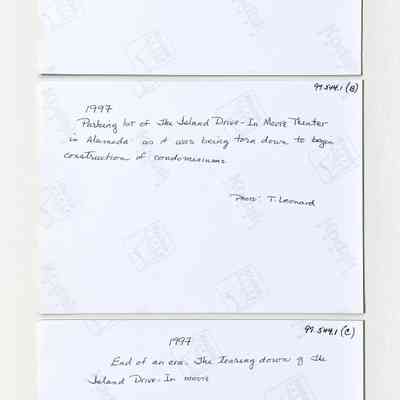 97.544.1 (B)
1997
Parking lot of The Island Drive-In Movie Theater
in Alameda as it was being torn down to begin
construction of condominiums
Photo: T. Leonard
97.544.1 (C)
1997
End of an era. The tearing down of the
Island Drive-In movie